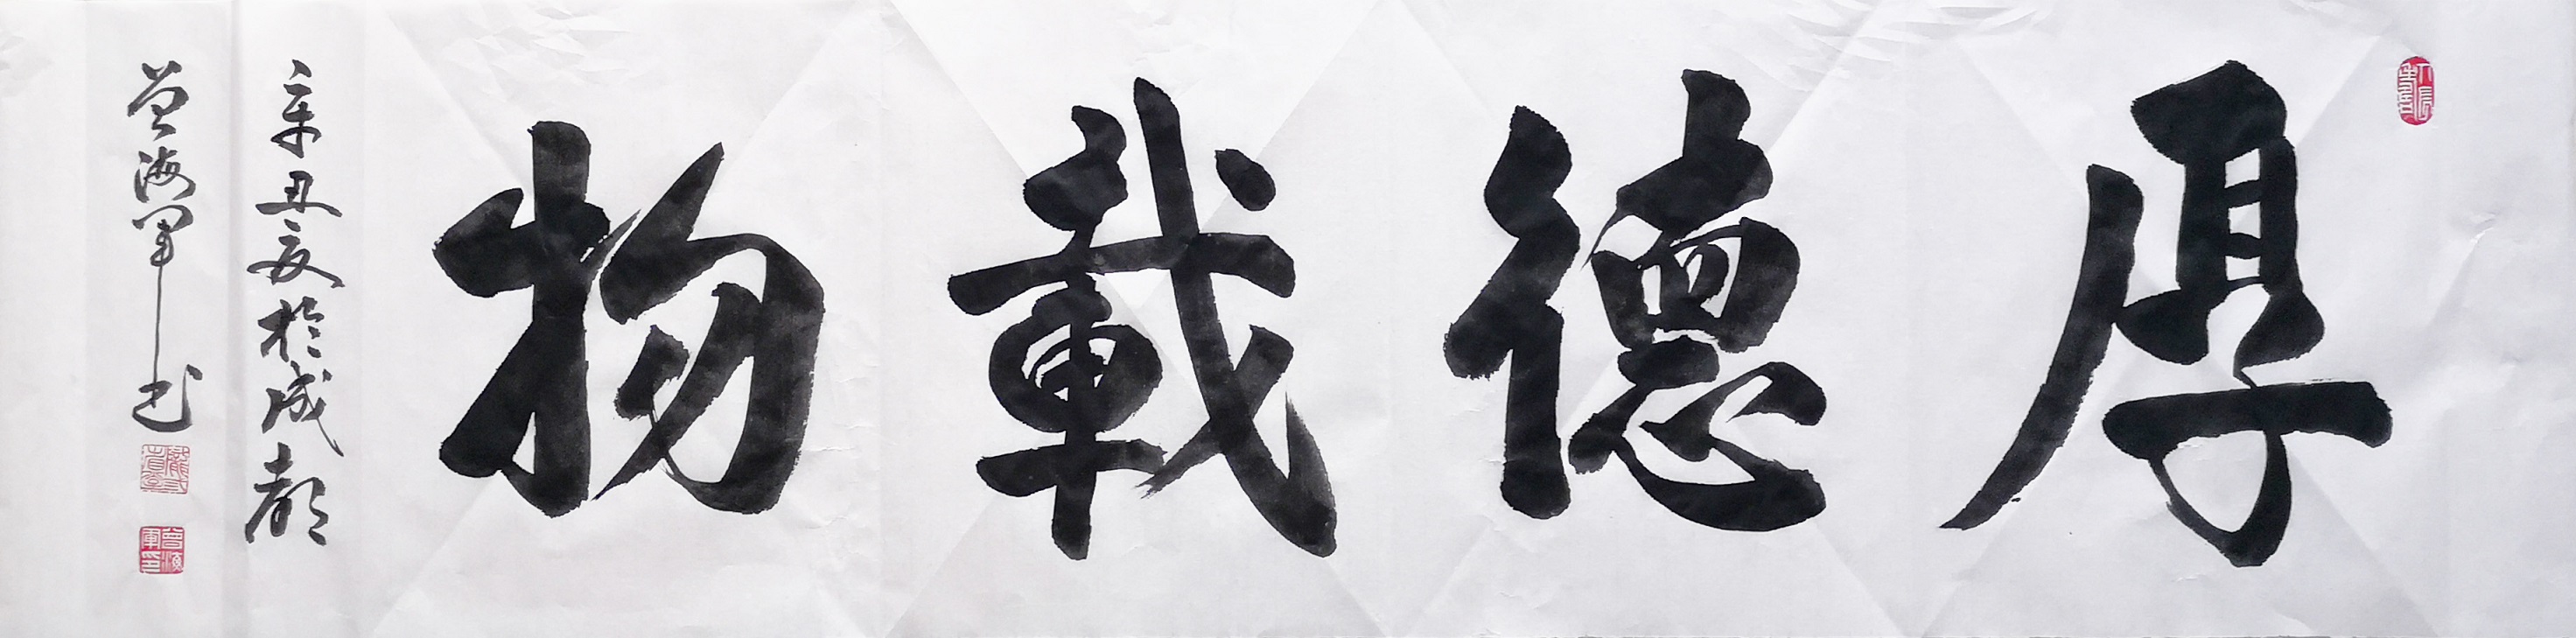 厚德載物
辛丑夏於成都
曾海軍书
曾海軍印